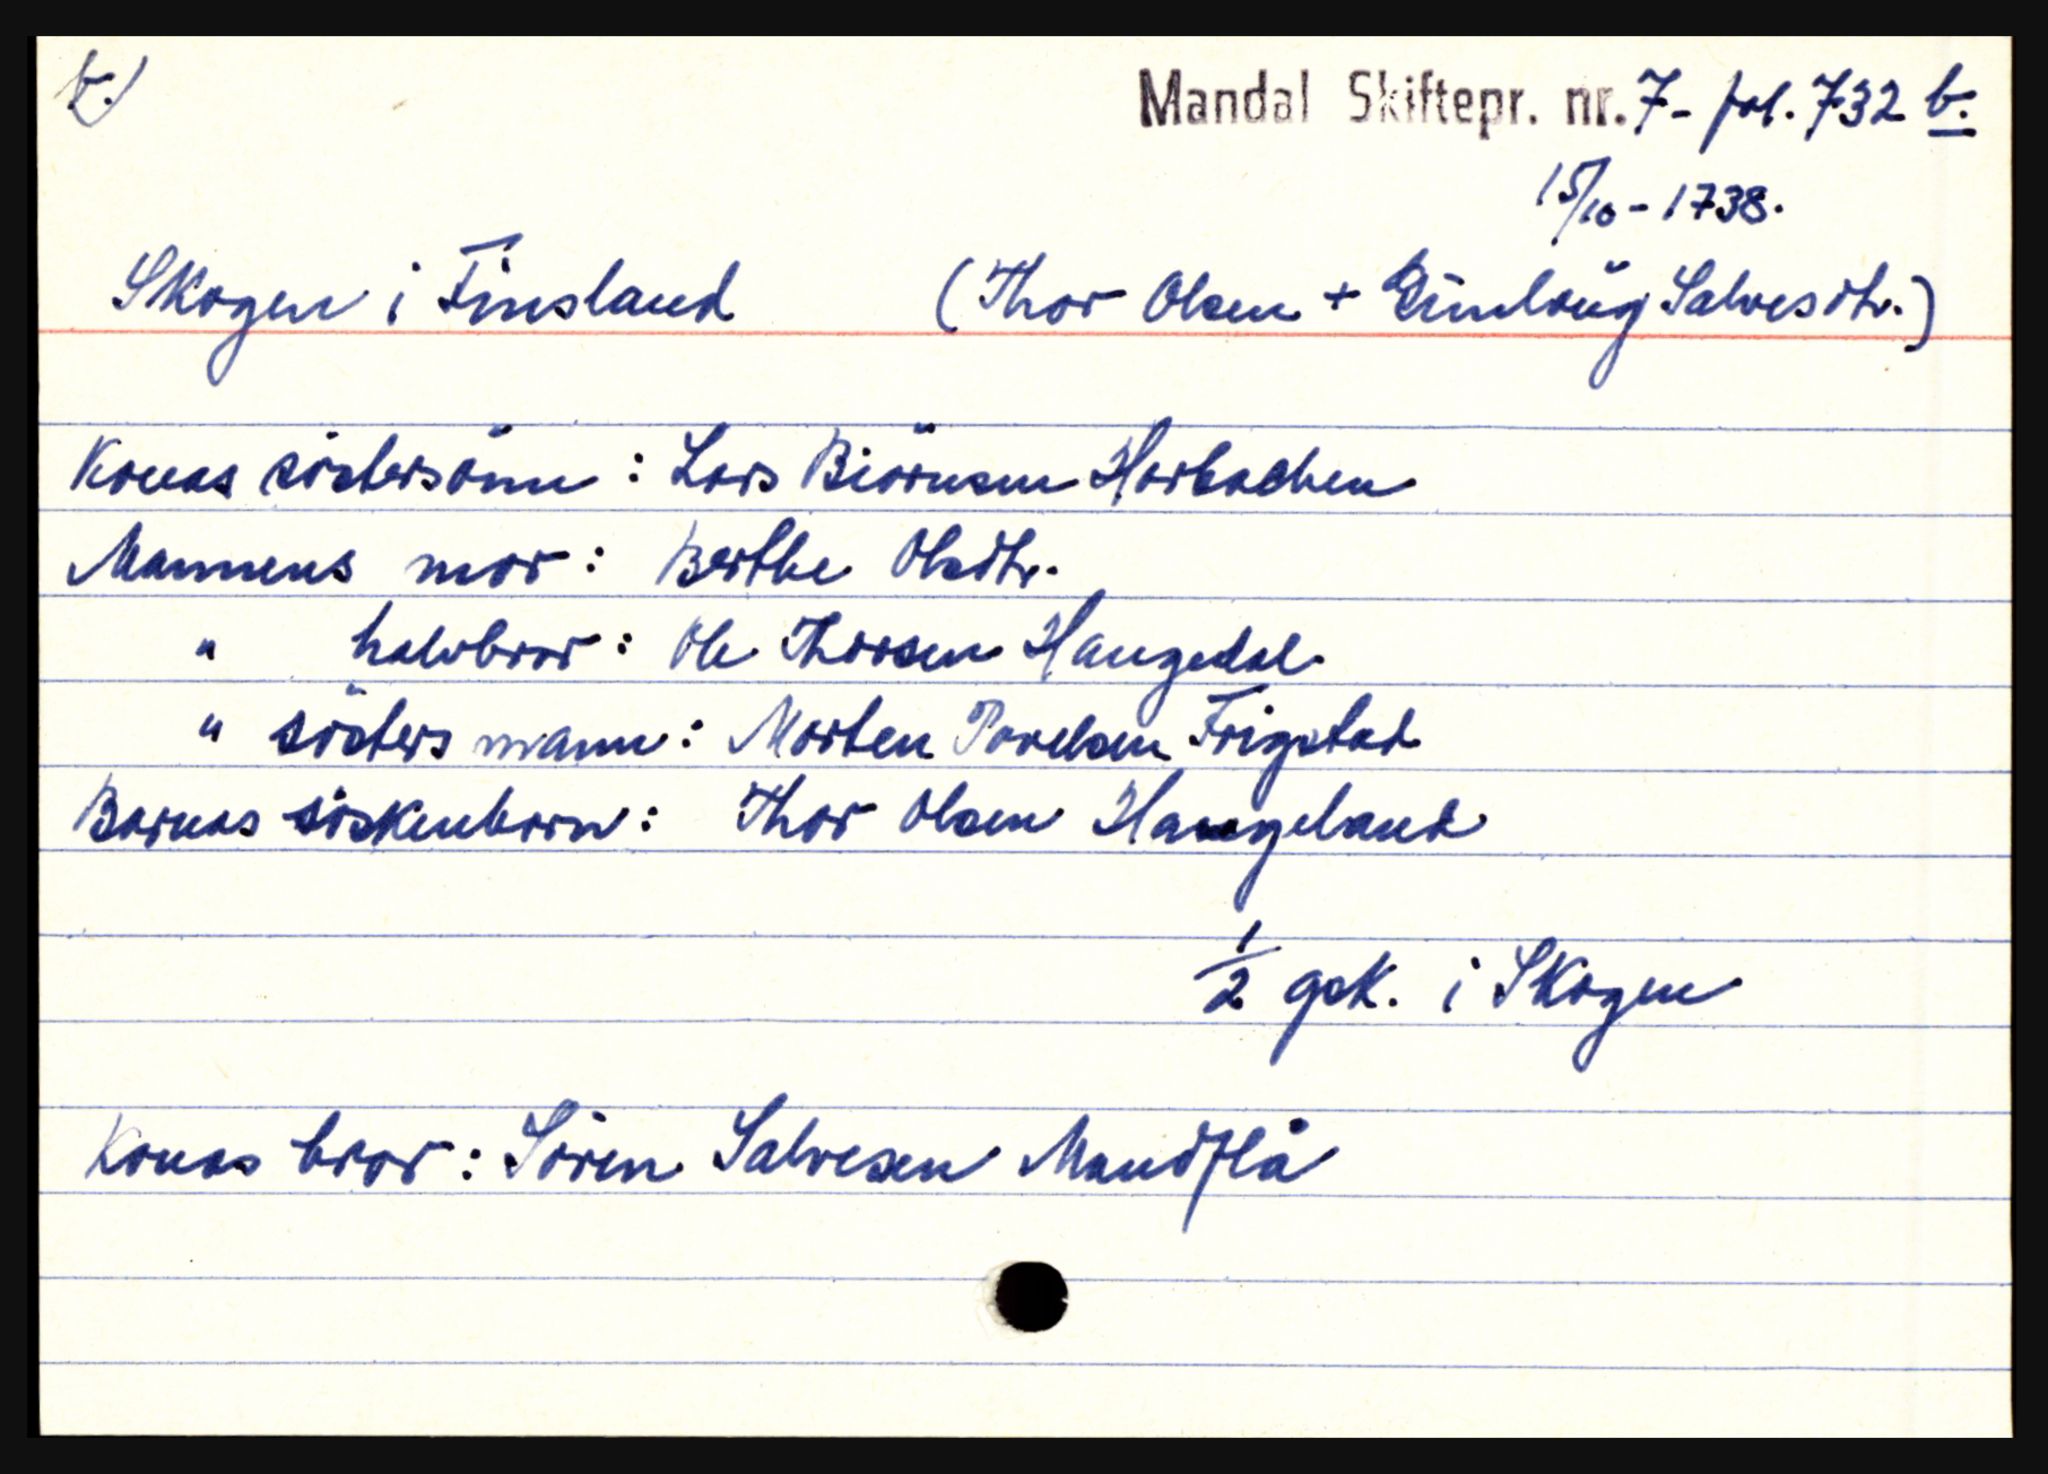 t.)
Mandal Skiftepr. nr. 7- fol. 732 b.
15/10 - 1738.
Skogen i Finsland (Thor Olsen + Gunloŭg Salvesdtr.)
Konas söstersönn : Lars Biörnsen Harbachen
Mannens mor : Berthe Olsdtr.
" halvbror : Ole Thorsen Haugedal
" sösters mann : Morten Povelsen Frigstad
Barnas söskenbarn : Thor Olsen Haugeland
1/2 gsk. i Skogen
Konas bror : Sören Salvesen Mandflå